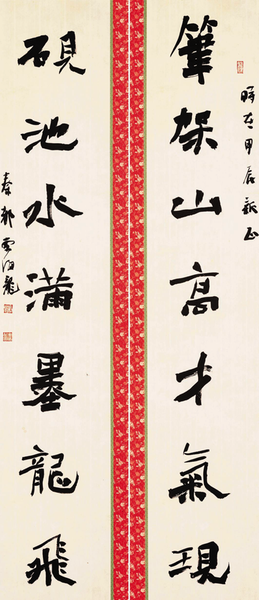 時在甲辰新正
筆架山高才氣現
硯池水滿墨龍飛
秦郵